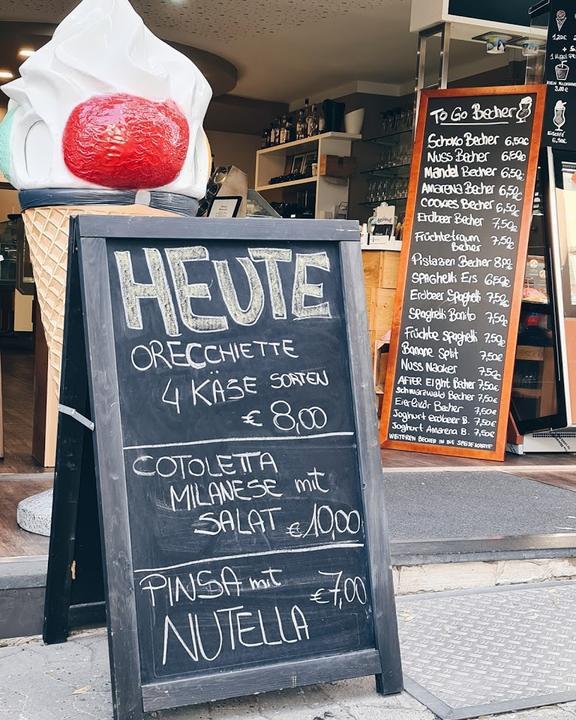 HEUTE
ORECCHIETTE
4 KÄSE SORTEN
€ 8,00
COTOLETTA
MILANESE mit
SALAT €10,00
PINSA mit €7,00
NUTELLA
To Go Becher
Schoko Becher 6,50€
Nuss Becher 6,50€
Mandel Becher 6,50€
Amarena Becher 6,50€
Cookies Becher 6,50€
Erdbeer Becher 7,50€
Früchtetraum 7,50€
Becher
Pistazien Becher 8,00€
Spaghetti Eis 6,50€
Erdbeer Spaghetti 7,50€
Früchte Spaghetti 7,50€
Banane Split 7,50€
Nuss Nacker 7,50€
AFTER EIGHT Becher 7,50€
Schwarzwald Becher 7,50€
Eierlikör Becher 7,50€
Joghurt erdbeer B. 7,50€
Joghurt Amarena B. 7,50€